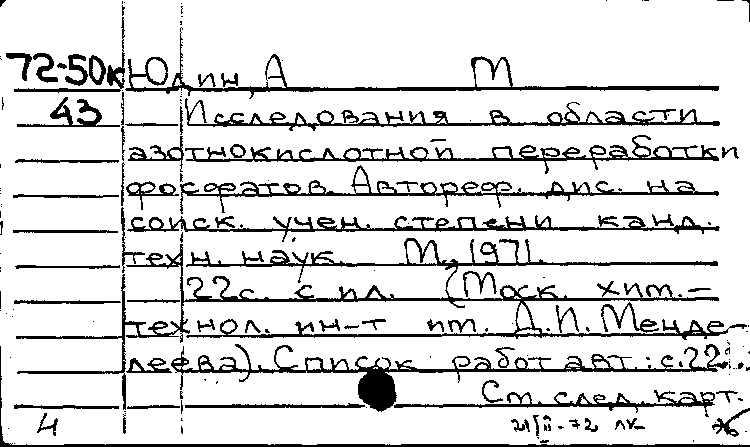 72-50к Юдин, А М
43 Исследования в области
азотнокислотной переработки
фосфатов. Автореф. дис. на
соиск. учен. степени канд.
техн. наук. М., 1971.
22с. с ил. (Моск. хим.-
технол. ин-т им. Д.И. Менде-
леева). Список работ авт.: с.22.
См. след. карт.
4 21/II-72 ЛК